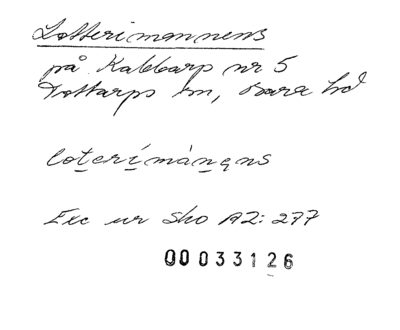 Lotterimannens
på Kabbarp nr 5
Tottarps sn, Bara hd
loterimànęns
Exc ur Sko A2: 277
00033126